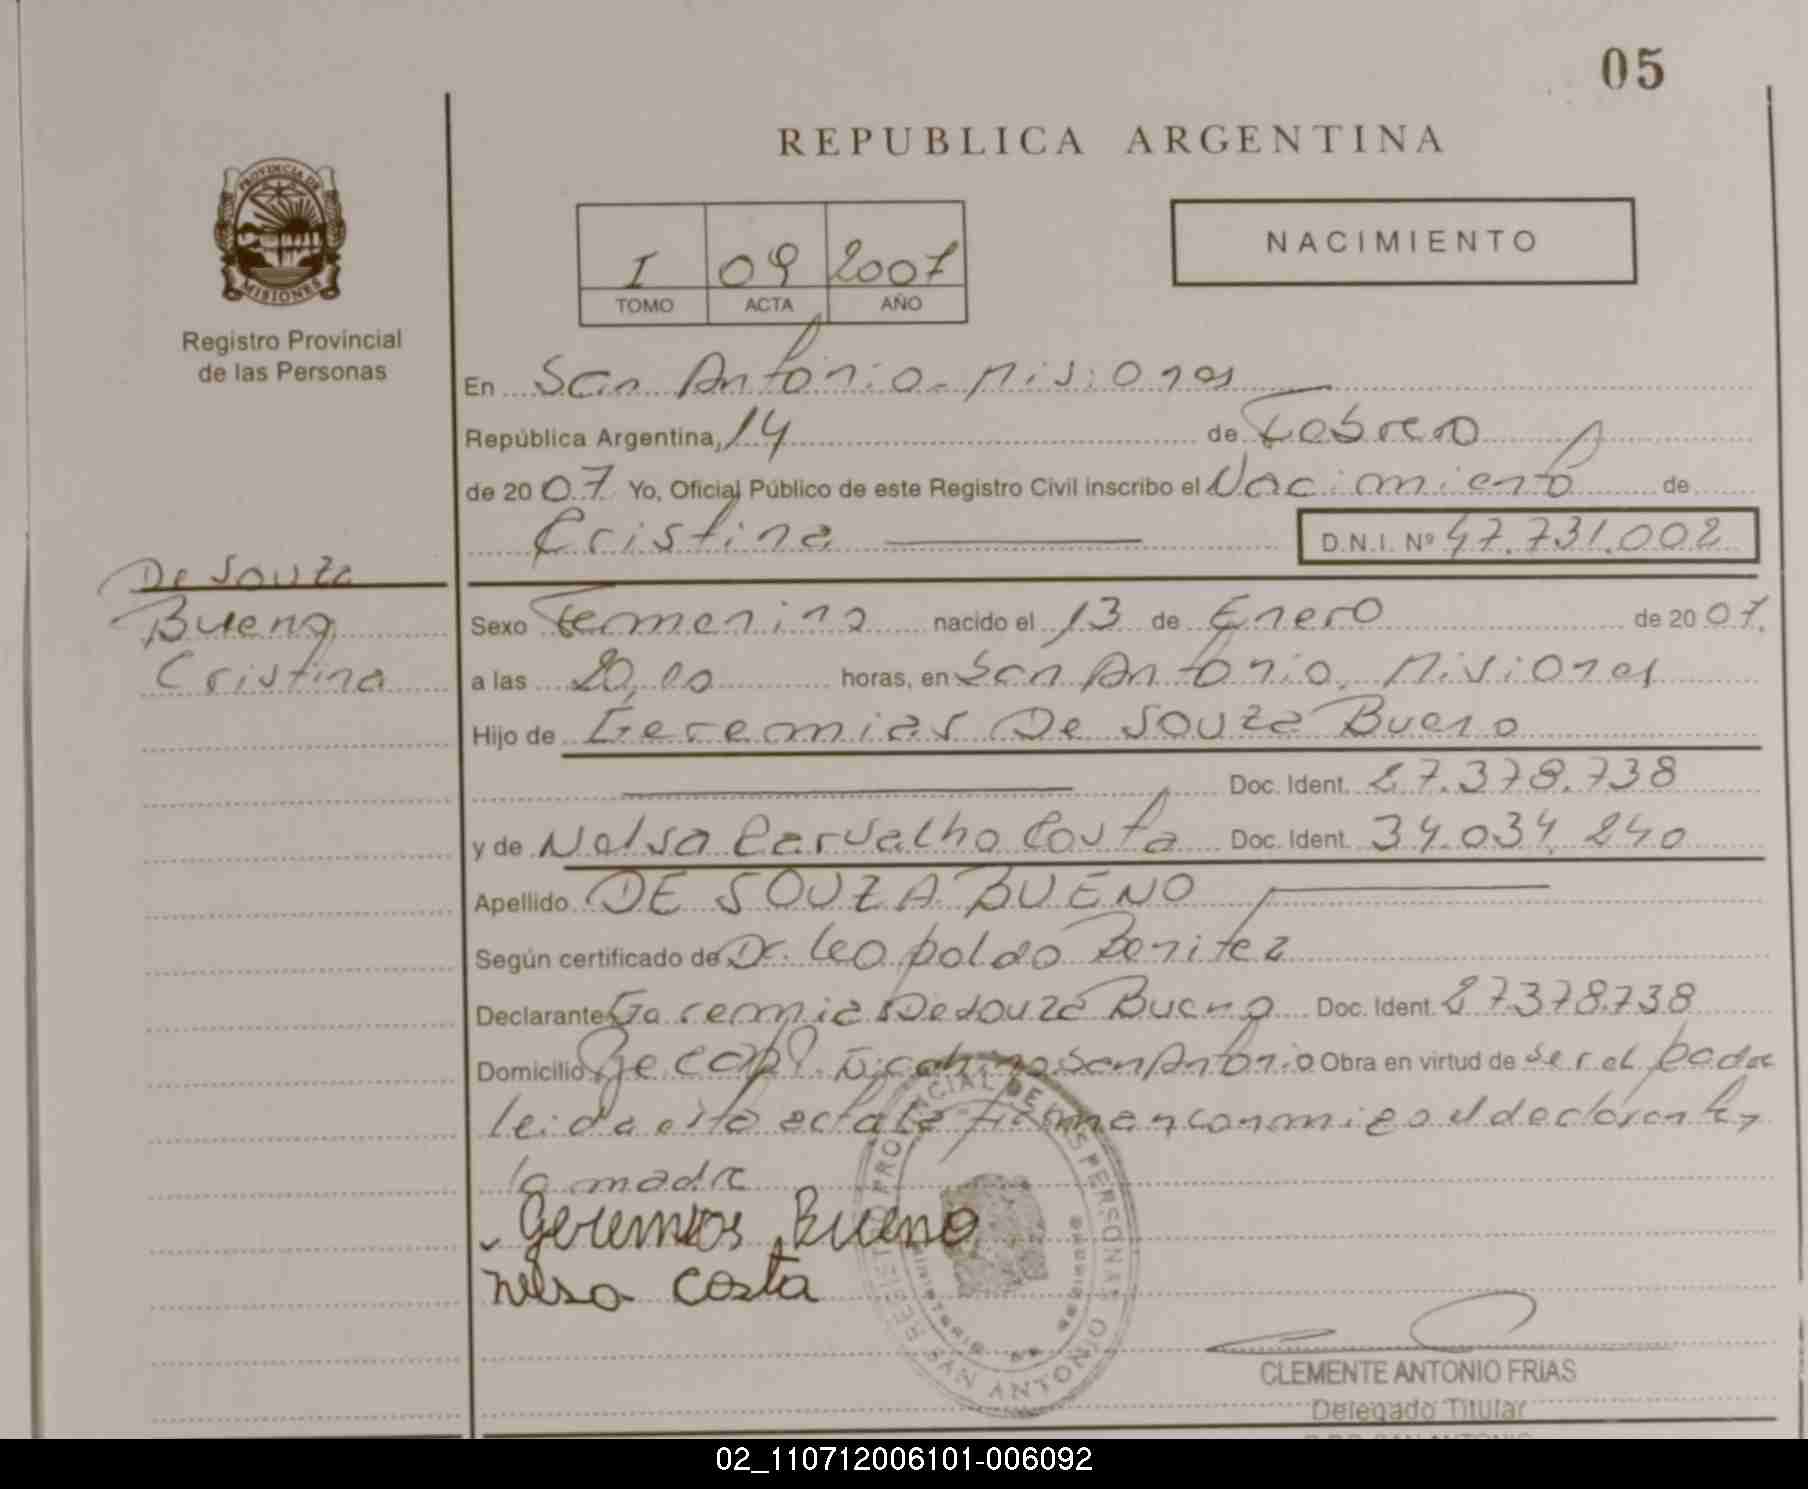 05
REPUBLICA ARGENTINA
PROVINCIA DE
MISIONES
Registro Provincial
de las Personas
I 09 2007
TOMO ACTA AÑO
NACIMIENTO
En San Antonio - Misiones
República Argentina, 14 de Febrero
de 2007 Yo, Oficial Público de este Registro Civil inscribo el Nacimiento de
Cristina
D.N.I. Nº 47.731.002
De Souza
Bueno
Cristina
Sexo Femenino nacido el 13 de Enero de 2007.
a las 20,00 horas, en San Antonio, Misiones
Hijo de Geremias De Souza Bueno
Doc. Ident. 27.378.738
y de Nelsa Carvalho Costa Doc. Ident. 34.034.240
Apellido DE SOUZA BUENO
Según certificado de Dr. Leopoldo Benitez
Declarante Geremias De Souza Bueno Doc. Ident. 27378.738
Domicilio San Antonio Obra en virtud de ser el padre
leida esta acta la firman conmigo el declarante y
la madre
Geremias Bueno
nelsa costa
REGISTRO PROVINCIAL DE LAS PERSONAS
SAN ANTONIO
CLEMENTE ANTONIO FRIAS
Delegado Titular
02_110712006101-006092